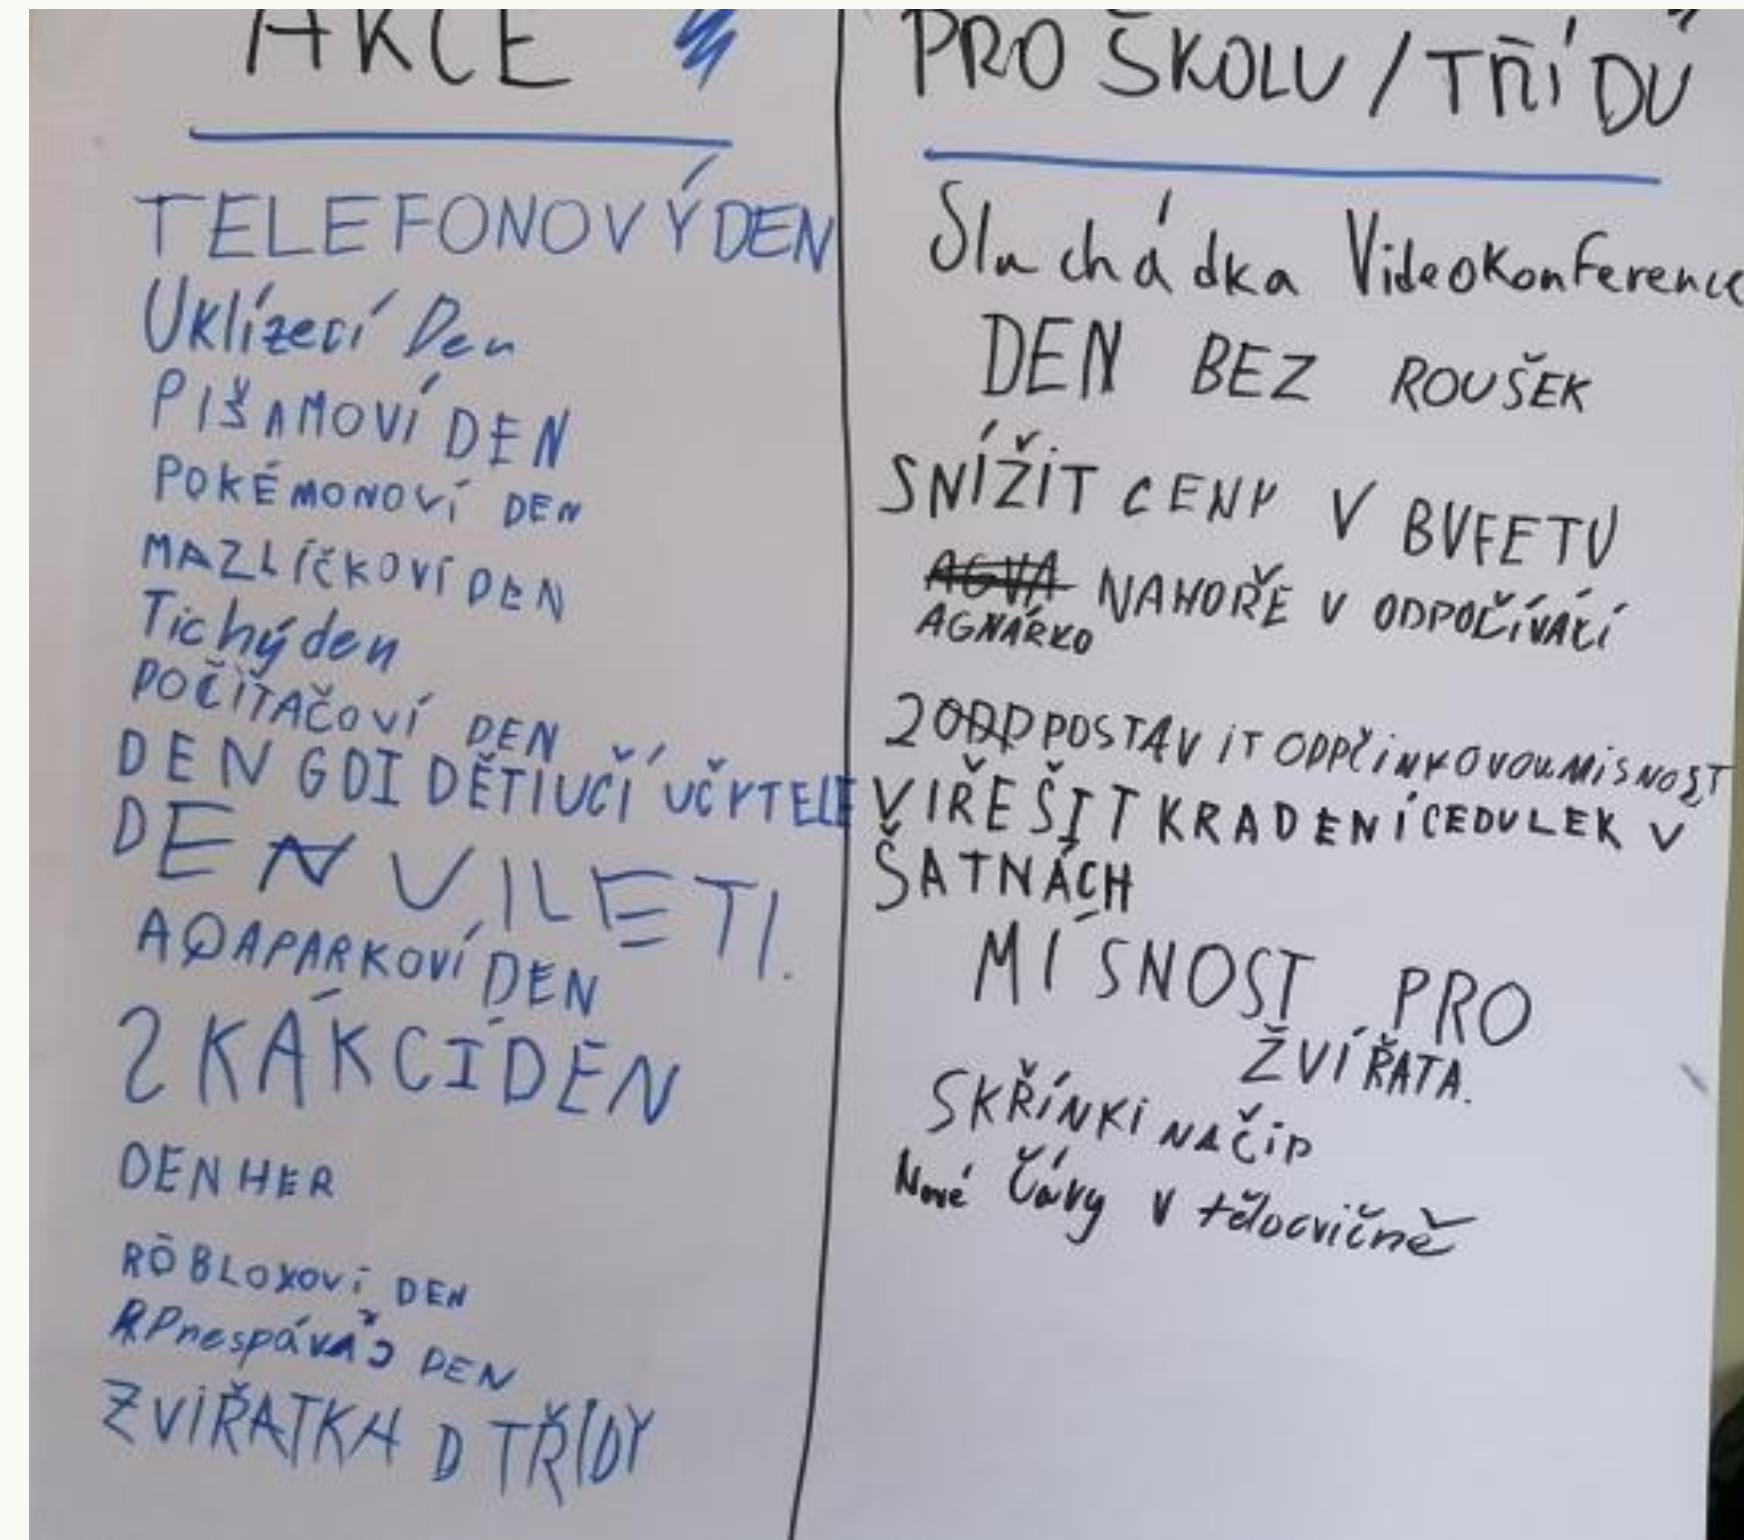 AKCE
TELEFONOVÝ DEN
Uklízecí Den
PIŠAMOVÍ DEN
POKÉMONOVÍ DEN
MAZLÍČKOVÍ DEN
Tichý den
POČÍTAČOVÍ DEN
DEN GDI DĚTI UČÍ UČYTELE
DEN VILETI.
AQAPARKOVÍ DEN
SKÁKCÍ DEN
DEN HER
RÓBLOXOVÍ DEN
DEN
ZVIŘATKA D TŘÍDY
PRO ŠKOLU / TŘÍDU
Sluchádka Videokonference
DEN BEZ ROUŠEK
SNÍŽIT CENY V BUFETU
AGVA NAHOŘE V ODPOČÍVÁCÍ
AGNÁRKO
POSTAVIT ODPČINKOVOU MISNOST
VIŘEŠIT KRADENÍ CEDULEK V
ŠATNÁCH
MÍSNOST PRO
ŽVÍŘATA.
SKŘÍNKI NA ČIP
Nové Čáry v tělocvičně